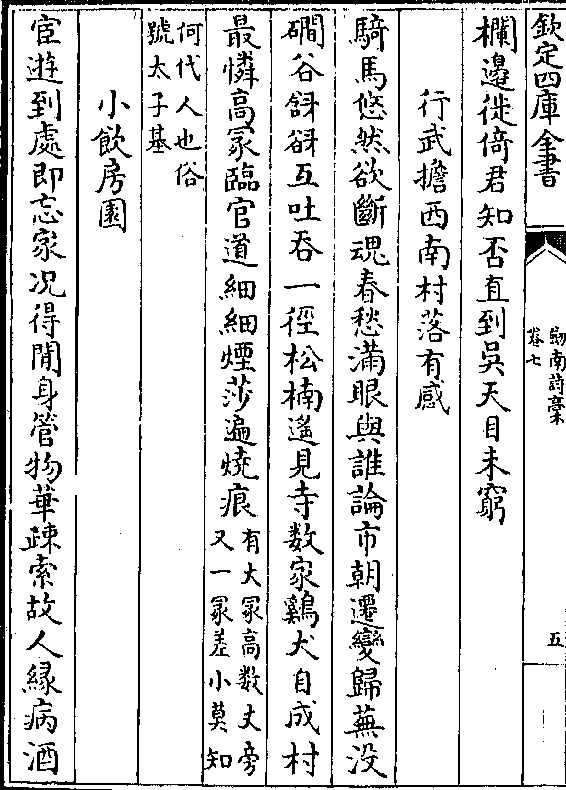 欽定四庫全書
劔南詩稾
卷七
五
欄邉徙倚君知否直到吳天目未窮
行武擔西南村落有感
騎馬悠然欲斷魂春愁滿眼與誰論市朝遷變歸蕪没
磵谷谽谺互吐吞一徑松楠遙見寺数家鷄犬自成村
最憐高冢臨官道細細煙莎遍燒痕有大冡高数丈旁
又一冡差小莫知
何代人也俗
號太子墓
小飲房園
宦遊到處即忘家况得閒身管物華踈索故人緣病酒